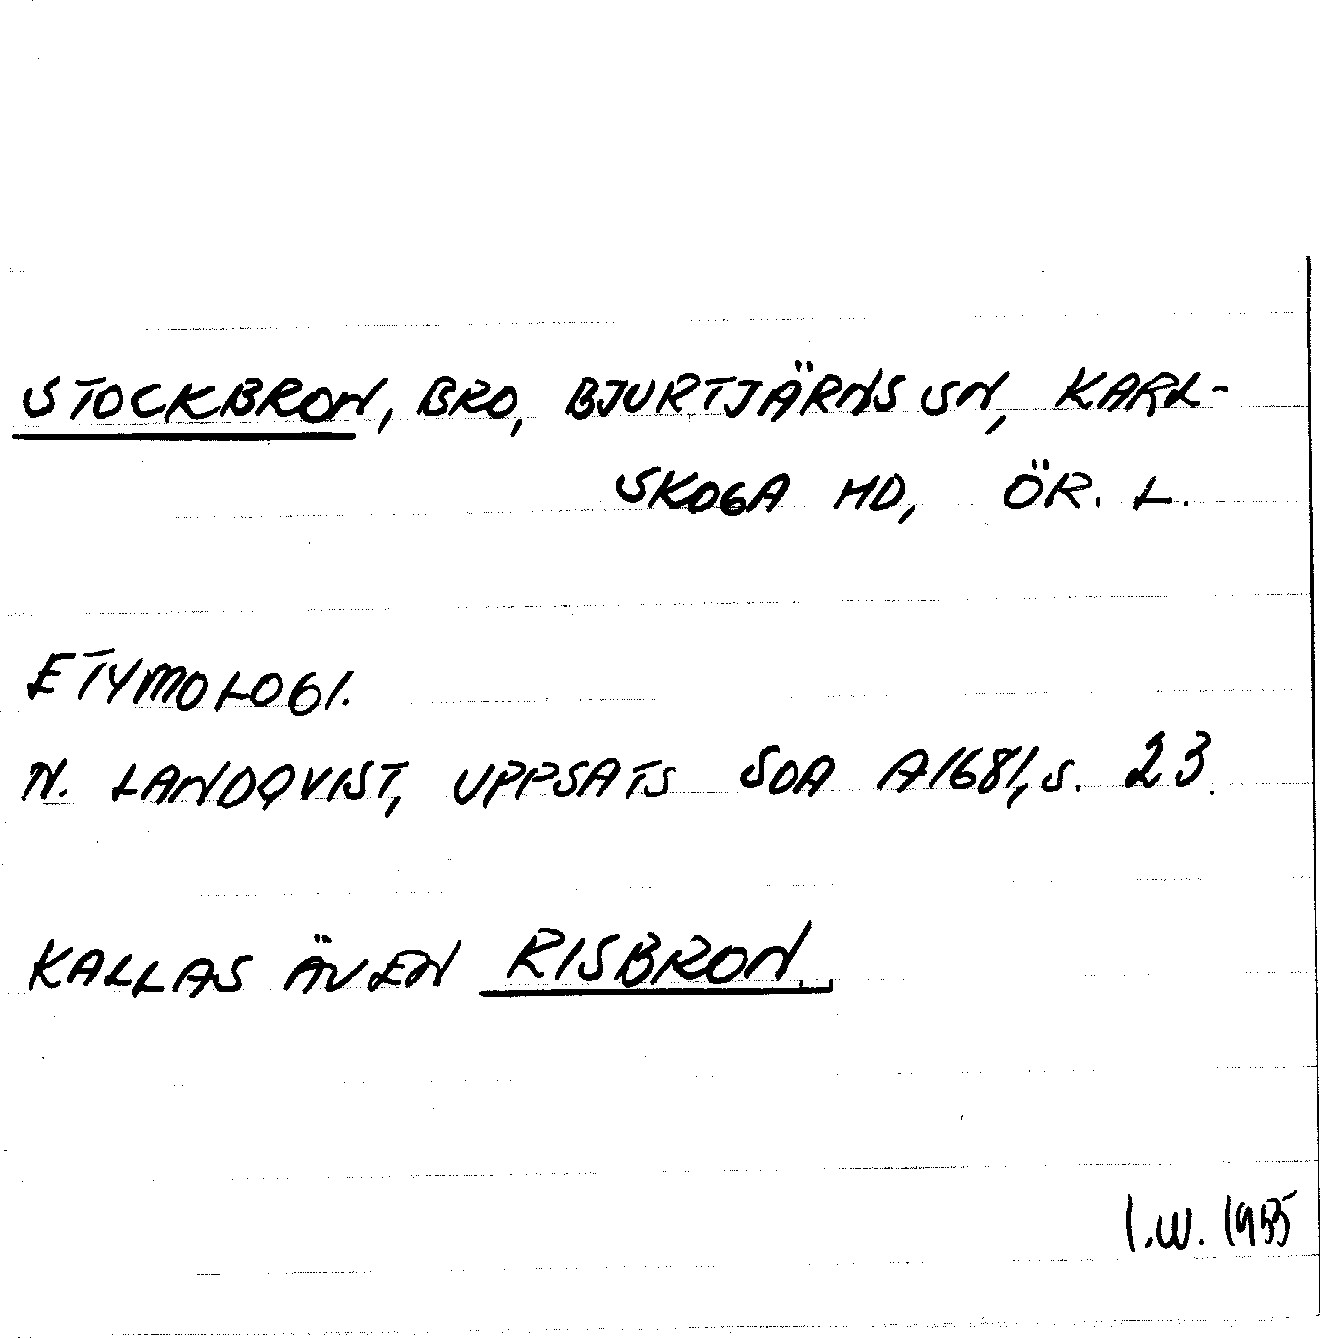 STOCKBRON, BRO, BJURTJÄRNS SN, KARL-
SKOGA HD, ÖR. L.
ETYMOLOGI.
N. LANDQVIST, UPPSATS SOA A1681, S. 23.
KALLAS ÄVEN RISBRON.
I.W. 1955